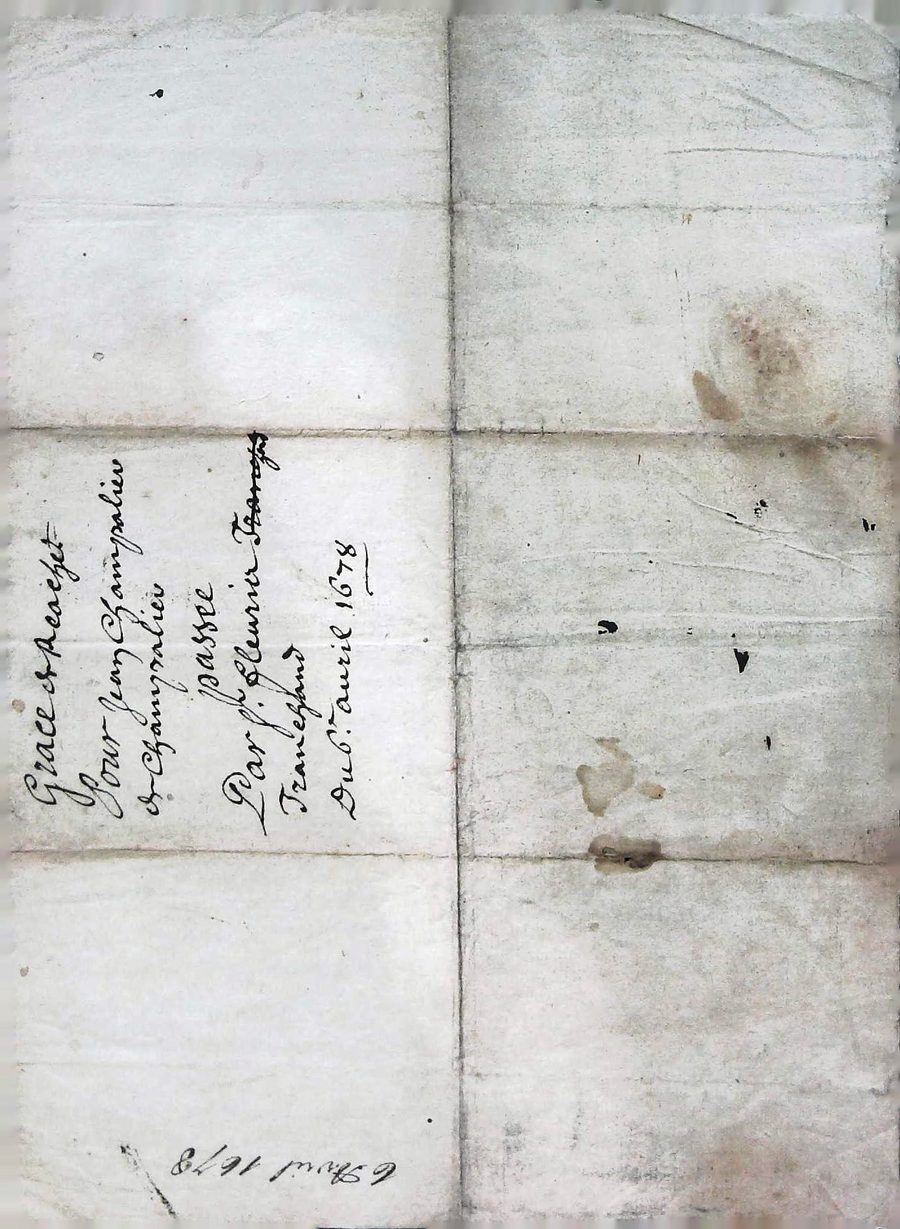 Grace de Reachet
Pour Jean Champalier
de Champalier
passée
Par Sr. fleurie
Tranchand
Du 6e. auril 1678
6 Avril 1678